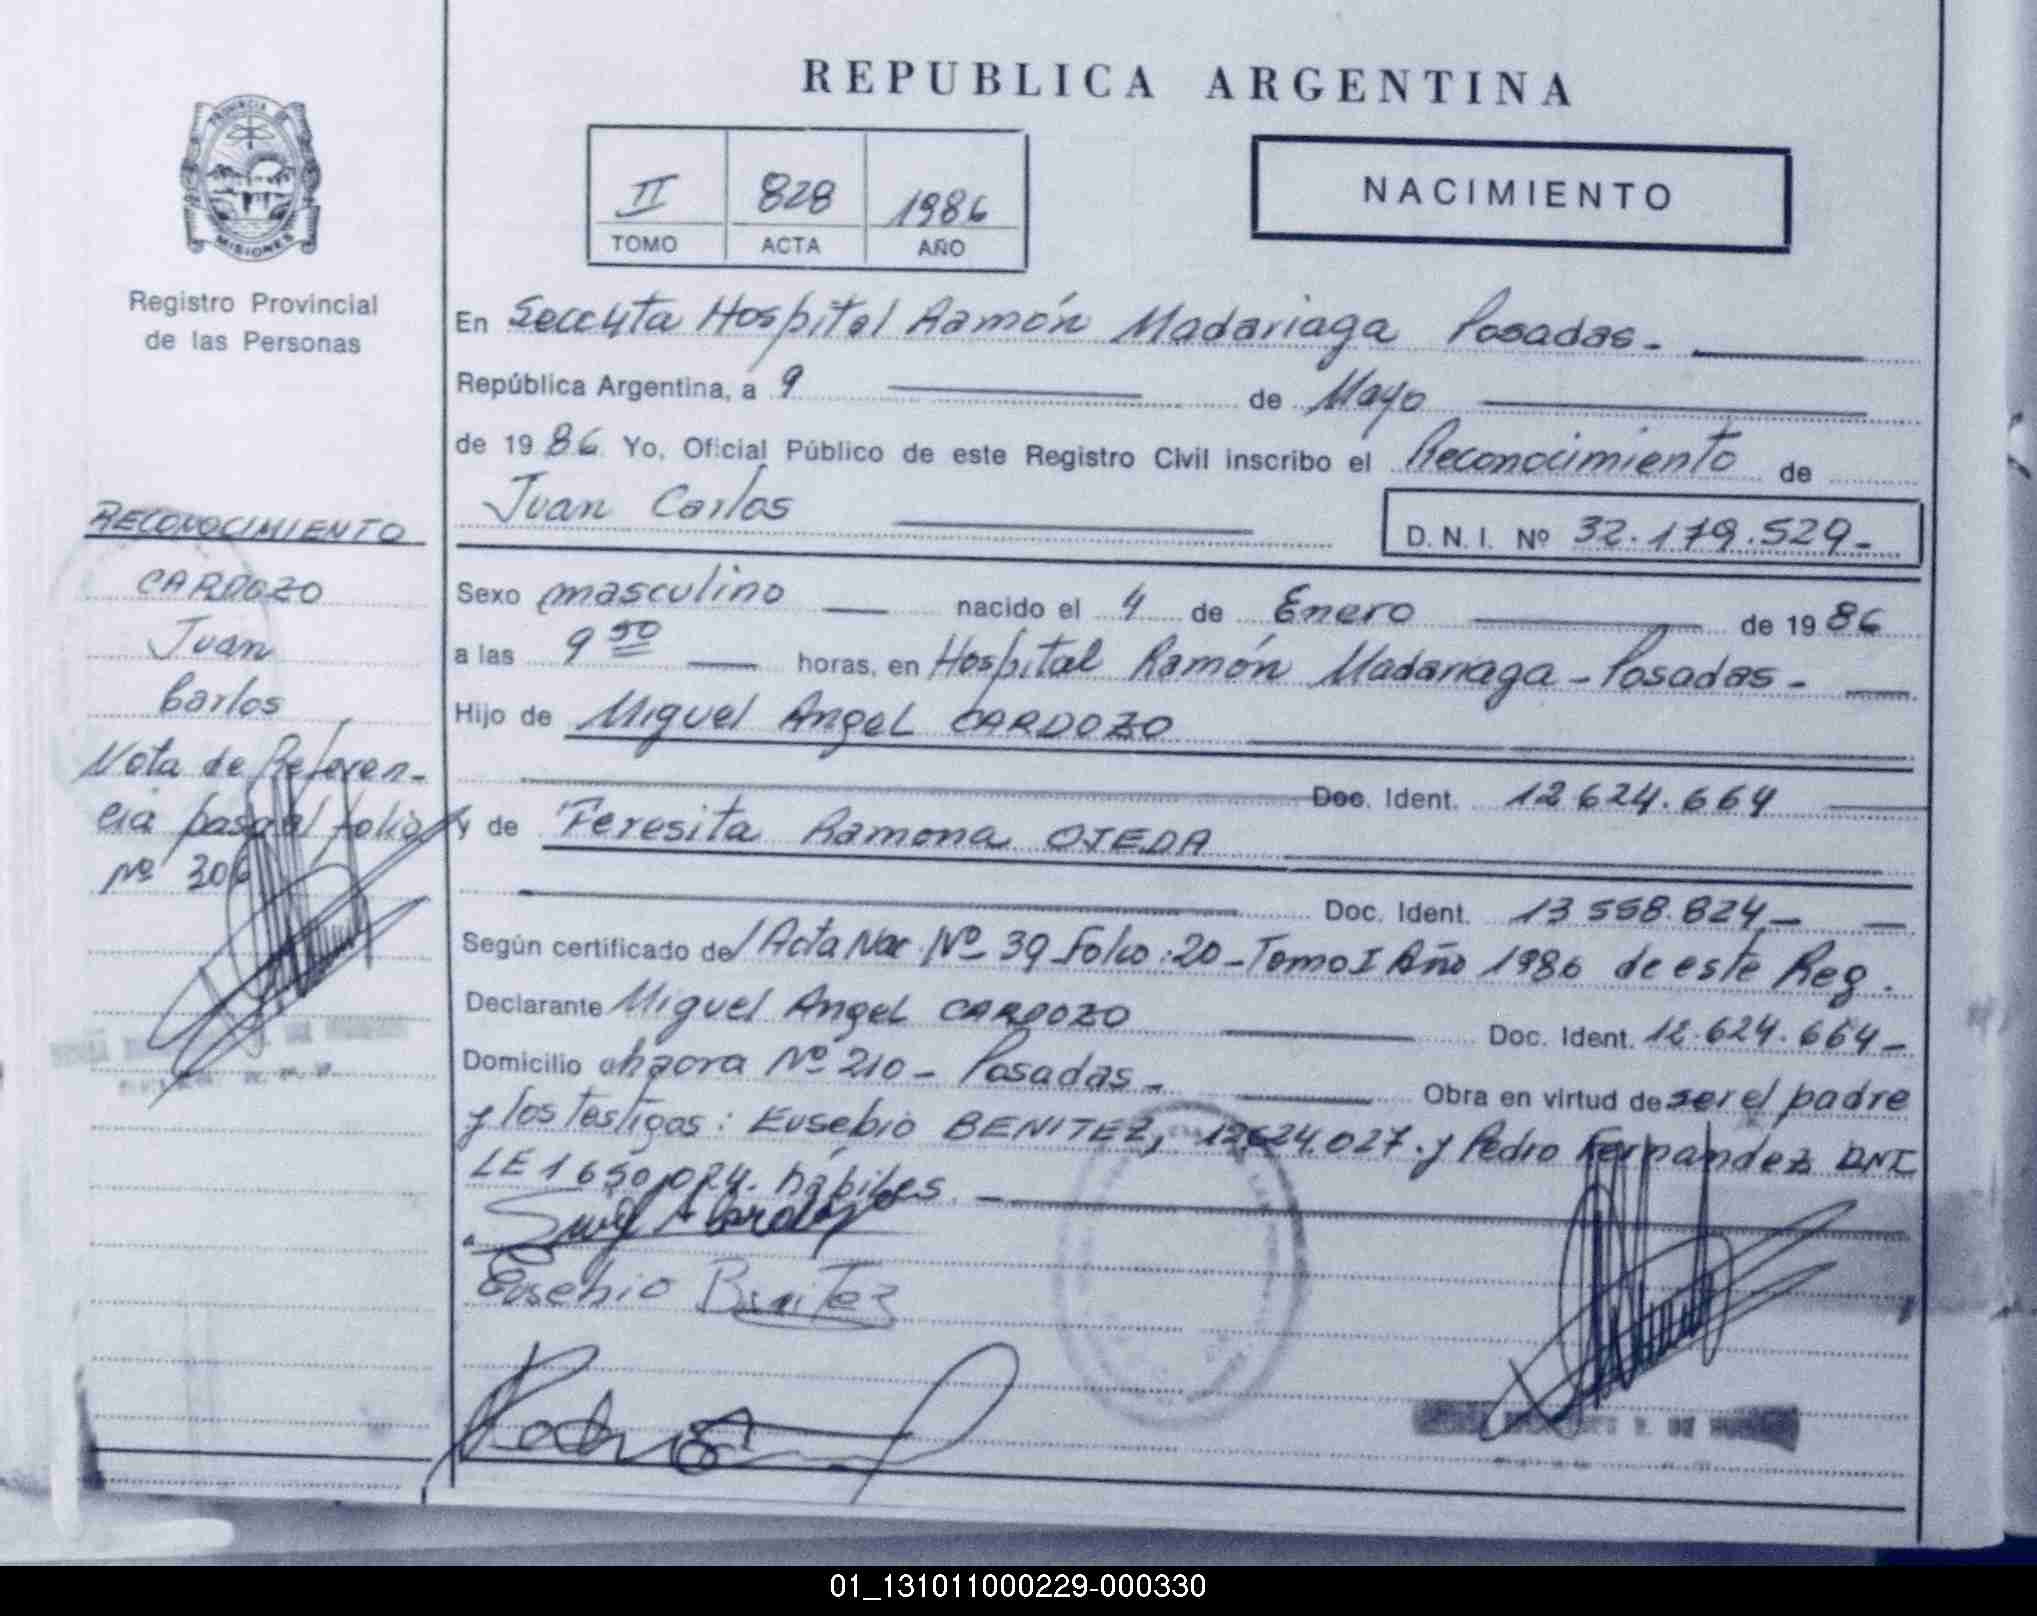 REPUBLICA ARGENTINA
PROVINCIA DE
MISIONES
Registro Provincial
de las Personas
II 828 1986
TOMO ACTA AÑO
NACIMIENTO
En Hospital Ramón Madariaga Posadas.-
República Argentina, a 9 de Mayo
de 1986 Yo, Oficial Público de este Registro Civil inscribo el Reconocimiento de
Juan Carlos
D. N. I. Nº 32.179.529.-
Sexo masculino nacido el 4 de Enero de 1986
a las 9 50 horas, en Hospital Ramón Madariaga - Posadas -
Hijo de Miguel Angel CARDOZO
Doc. Ident. 12 624.664
y de Teresita Ramona OJEDA
Doc. Ident. 13 558.824.-
Según certificado de Acta Nac. Nº 39 Folio: 20 - Tomo I Año 1986 de este Reg.
Declarante Miguel Angel CARDOZO Doc. Ident. 12.624.664-
Domicilio chacra Nº 210 - Posadas - Obra en virtud de ser el padre
y los testigos: Eusebio BENITEZ, 12.624.027. y Pedro Fernandez DNI
LE 1 650.024. hábiles.-
Eusebio Benitez
RECONOCIMIENTO
CARDOZO
Juan
Carlos
Nota de Referen-
cia pasa al folio
Nº 306
01_131011000229-000330